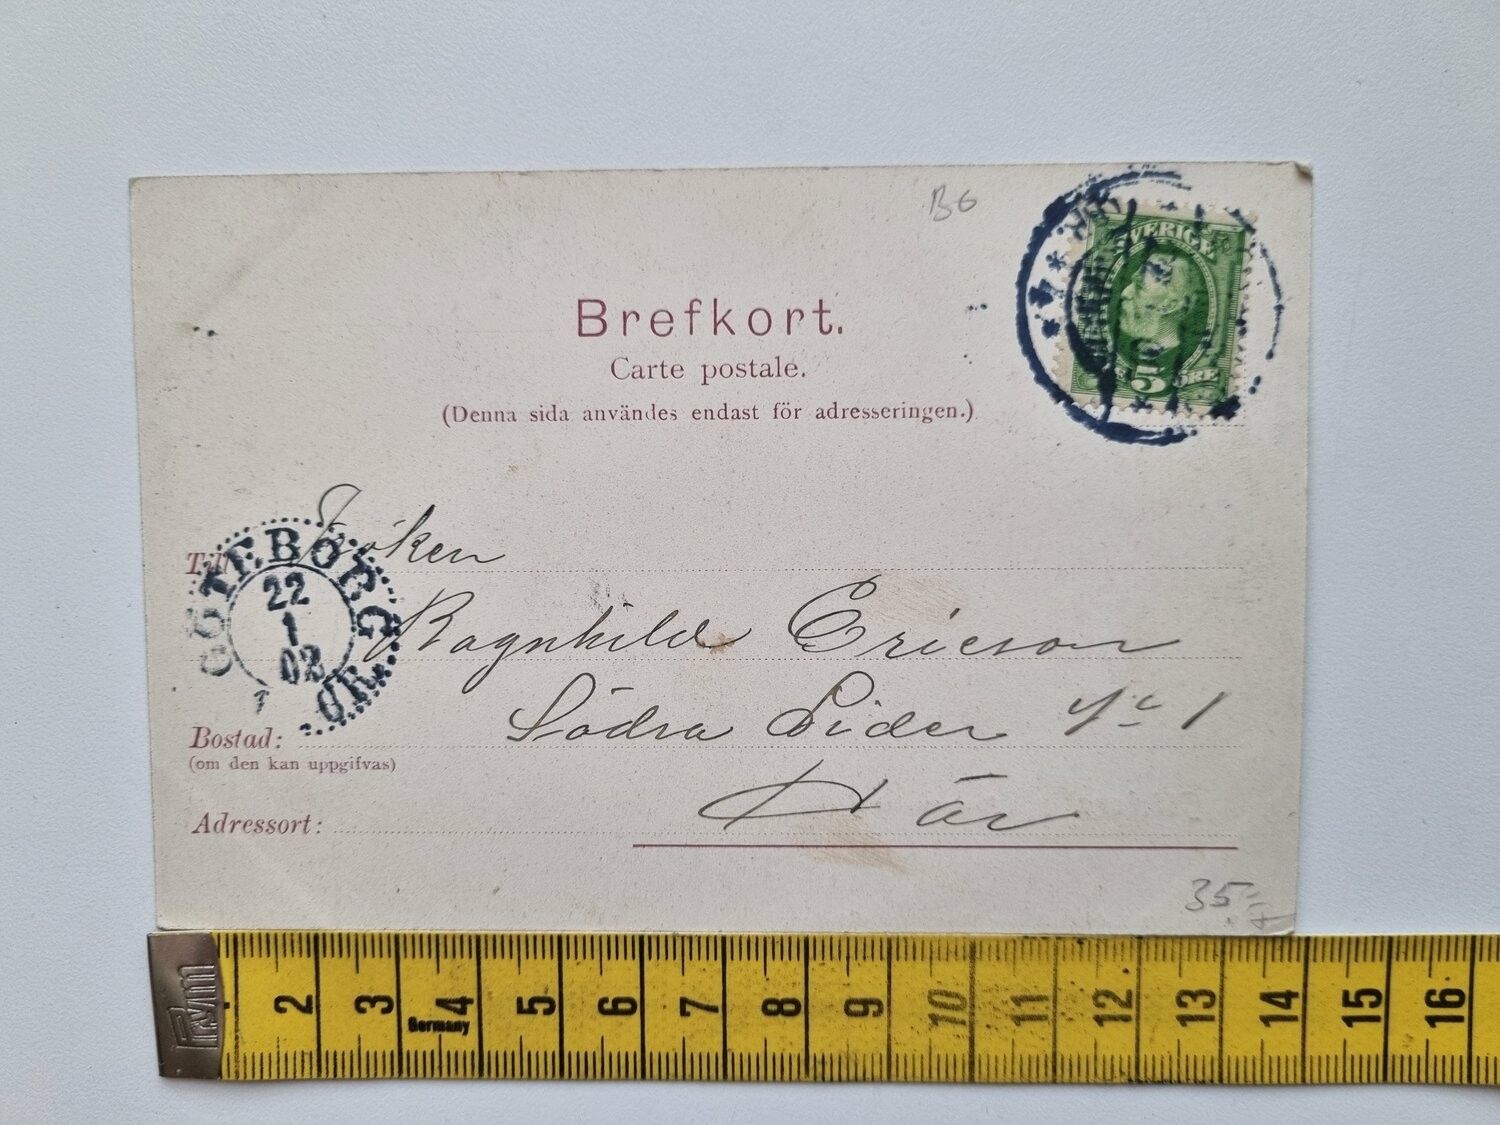 B6
SVERIGE
5 ÖRE
Brefkort.
Carte postale.
(Denna sida användes endast för adresseringen.)
Till Fröken
GÖTEBORG
22
1
02
Ragnhild Ericson
Bostad: Södra Liden No 1
(om den kan uppgifvas)
Adressort: Här
35:-
Prym
2 3 4 5 6 7 8 9 10 11 12 13 14 15 16
Germany